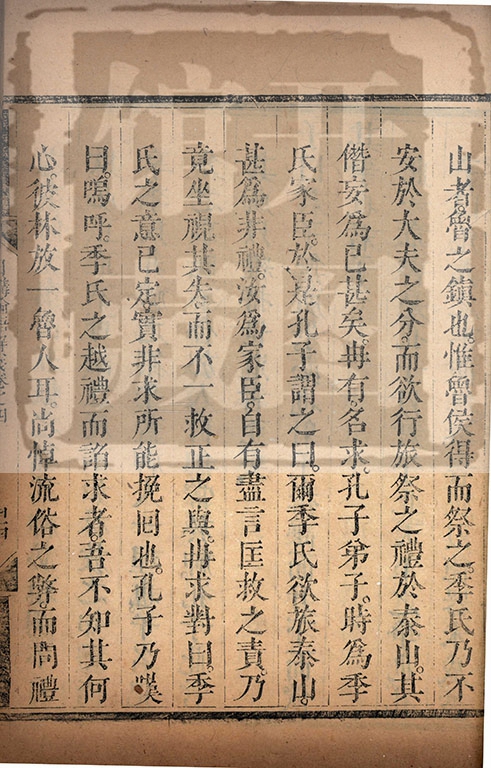 山者魯之鎮也。惟魯侯得而祭之。季氏乃不
安於大夫之分。而欲行旅祭之禮於泰山。其
僭妄爲已甚矣。冉有。名求。孔子弟子。時爲季
氏家臣。於是孔子謂之曰。爾季氏欲旅泰山。
甚爲非禮。汝爲家臣。自有盡言匡救之責。乃
竟坐視其失。而不一救正之與。冉求對曰。季
氏之意已定。實非求所能挽回也。孔子乃嘆
曰。嗚呼。季氏之越禮而諂求者。吾不知其何
心。彼林放一魯人耳。尚悼流俗之弊而問禮